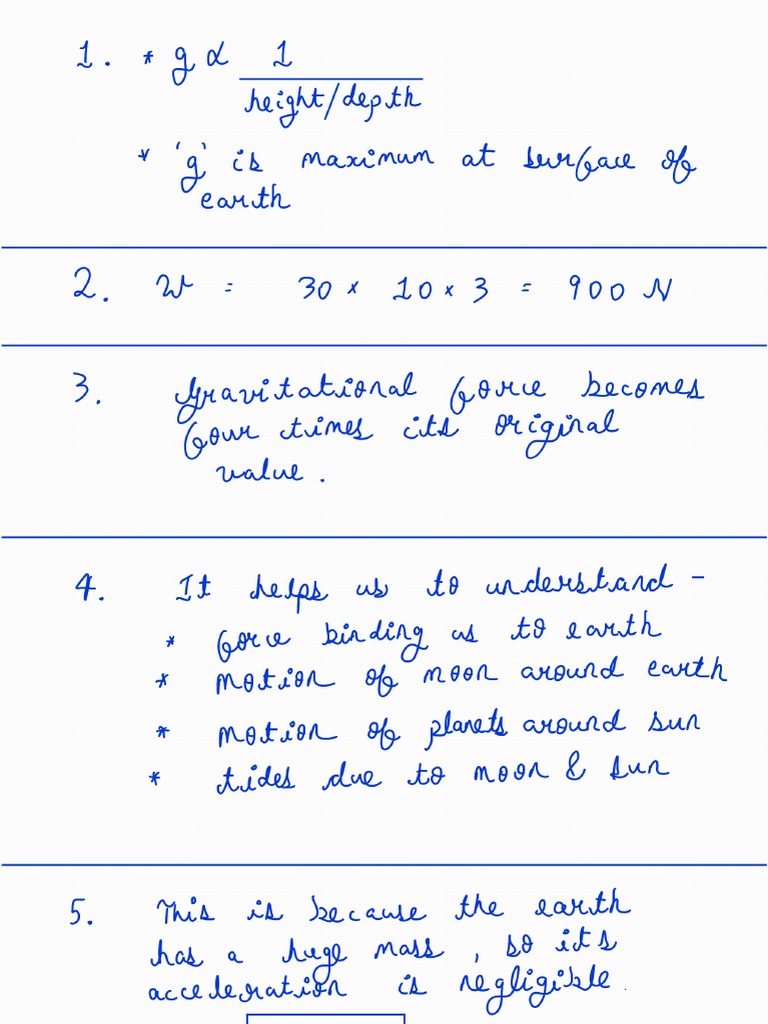 1. * g ∝ 1
height/depth
* 'g' is maximum at surface of
earth
2. W = 30 × 10 × 3 = 900 N
3. Gravitational force becomes
four times its original
value.
4. It helps us to understand -
* force binding us to earth
* motion of moon around earth
* motion of planets around sun
* tides due to moon & sun
5. This is because the earth
has a huge mass, so its
acceleration is negligible.